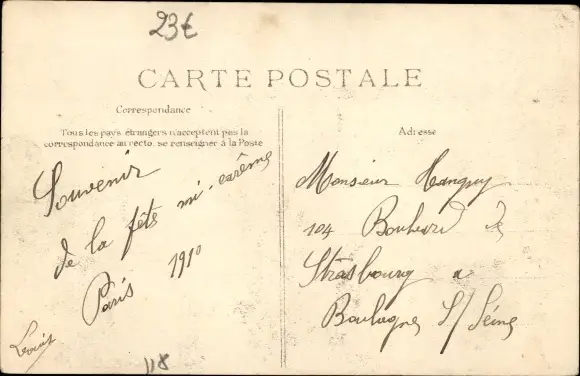 23€
CARTE POSTALE
Correspondance
Tous les pays étrangers n'acceptent pas la
correspondance au recto. se renseigner à la Poste
Souvenir
de la fête mi-carême
Paris 1910
Louis
118
Adresse
Monsieur Tanguy
104 Boulevard de
Strasbourg a
Boulogne S/ Seine